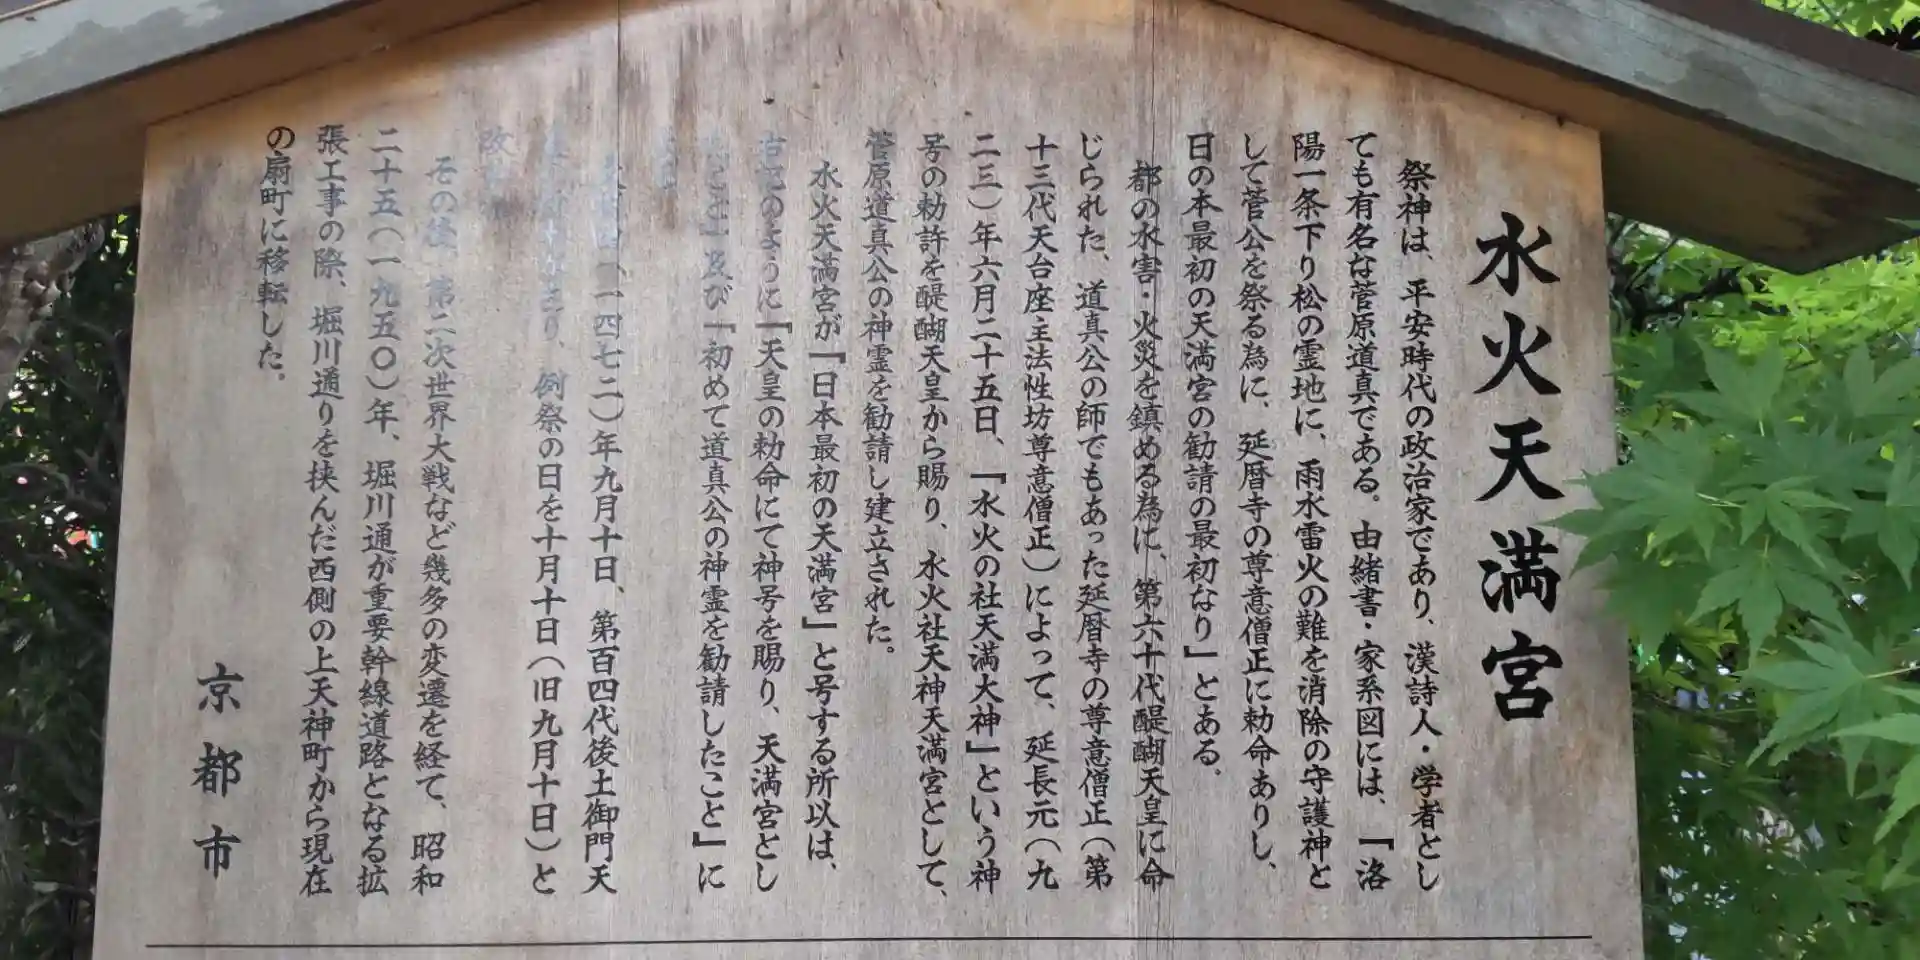 水火天満宮
祭神は、平安時代の政治家であり、漢詩人・学者とし
ても有名な菅原道真である。由緒書・家系図には、「洛
陽一条下り松の霊地に、雨水雷火の難を消除の守護神と
して菅公を祭る為に、延暦寺の尊意僧正に勅命ありし、
日の本最初の天満宮の勧請の最初なり」とある。
都の水害・火災を鎮める為に、第六十代醍醐天皇に命
じられた、道真公の師でもあった延暦寺の尊意僧正(第
十三代天台座主法性坊尊意僧正)によって、延長元(九
二三)年六月二十五日、「水火の社天満大神」という神
号の勅許を醍醐天皇から賜り、水火社天神天満宮として、
菅原道真公の神霊を勧請し建立された。
水火天満宮が「日本最初の天満宮」と号する所以は、
右記のように「天皇の勅命にて神号を賜り、天満宮とし
及び「初めて道真公の神霊を勧請したこと」に
(一四七二)年九月十日、第百四代後土御門天
り、例祭の日を十月十日(旧九月十日)と
改
その後、第二次世界大戦など幾多の変遷を経て、昭和
二十五(一九五〇)年、堀川通が重要幹線道路となる拡
張工事の際、堀川通りを挟んだ西側の上天神町から現在
の扇町に移転した。
京都市